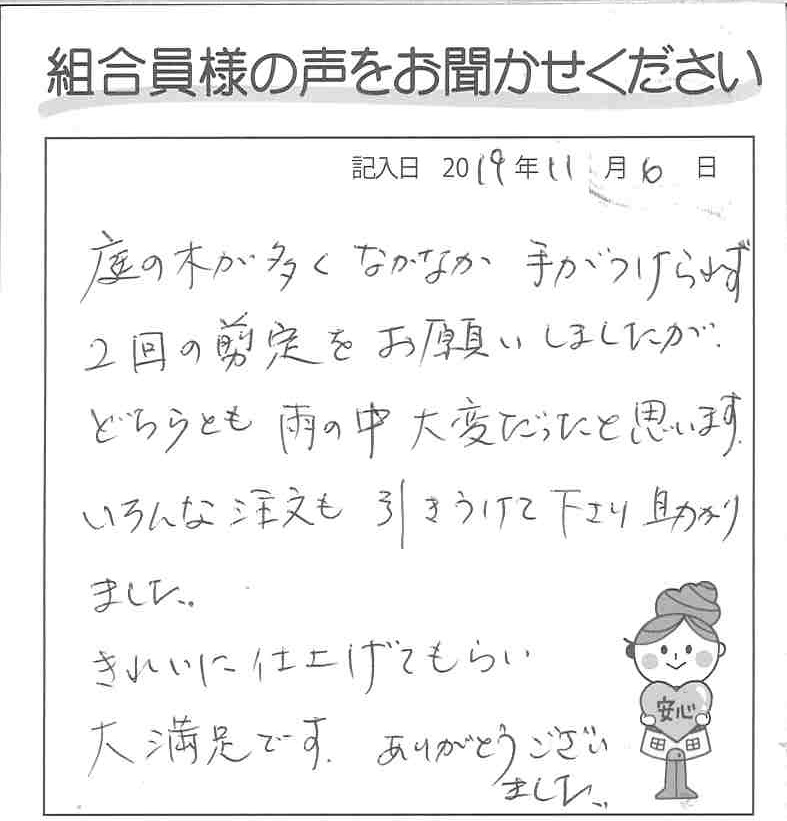 組合員様の声をお聞かせください
記入日 2019年11月6日
庭の木が多く なかなか 手がつけられず
2回の剪定を お願いしましたが、
どちらとも 雨の中 大変だったと思います。
いろんな注文も 引きうけて下さり 助かり
ました。
きれいに仕上げてもらい
大満足です。 ありがとうござい
ました。
安心